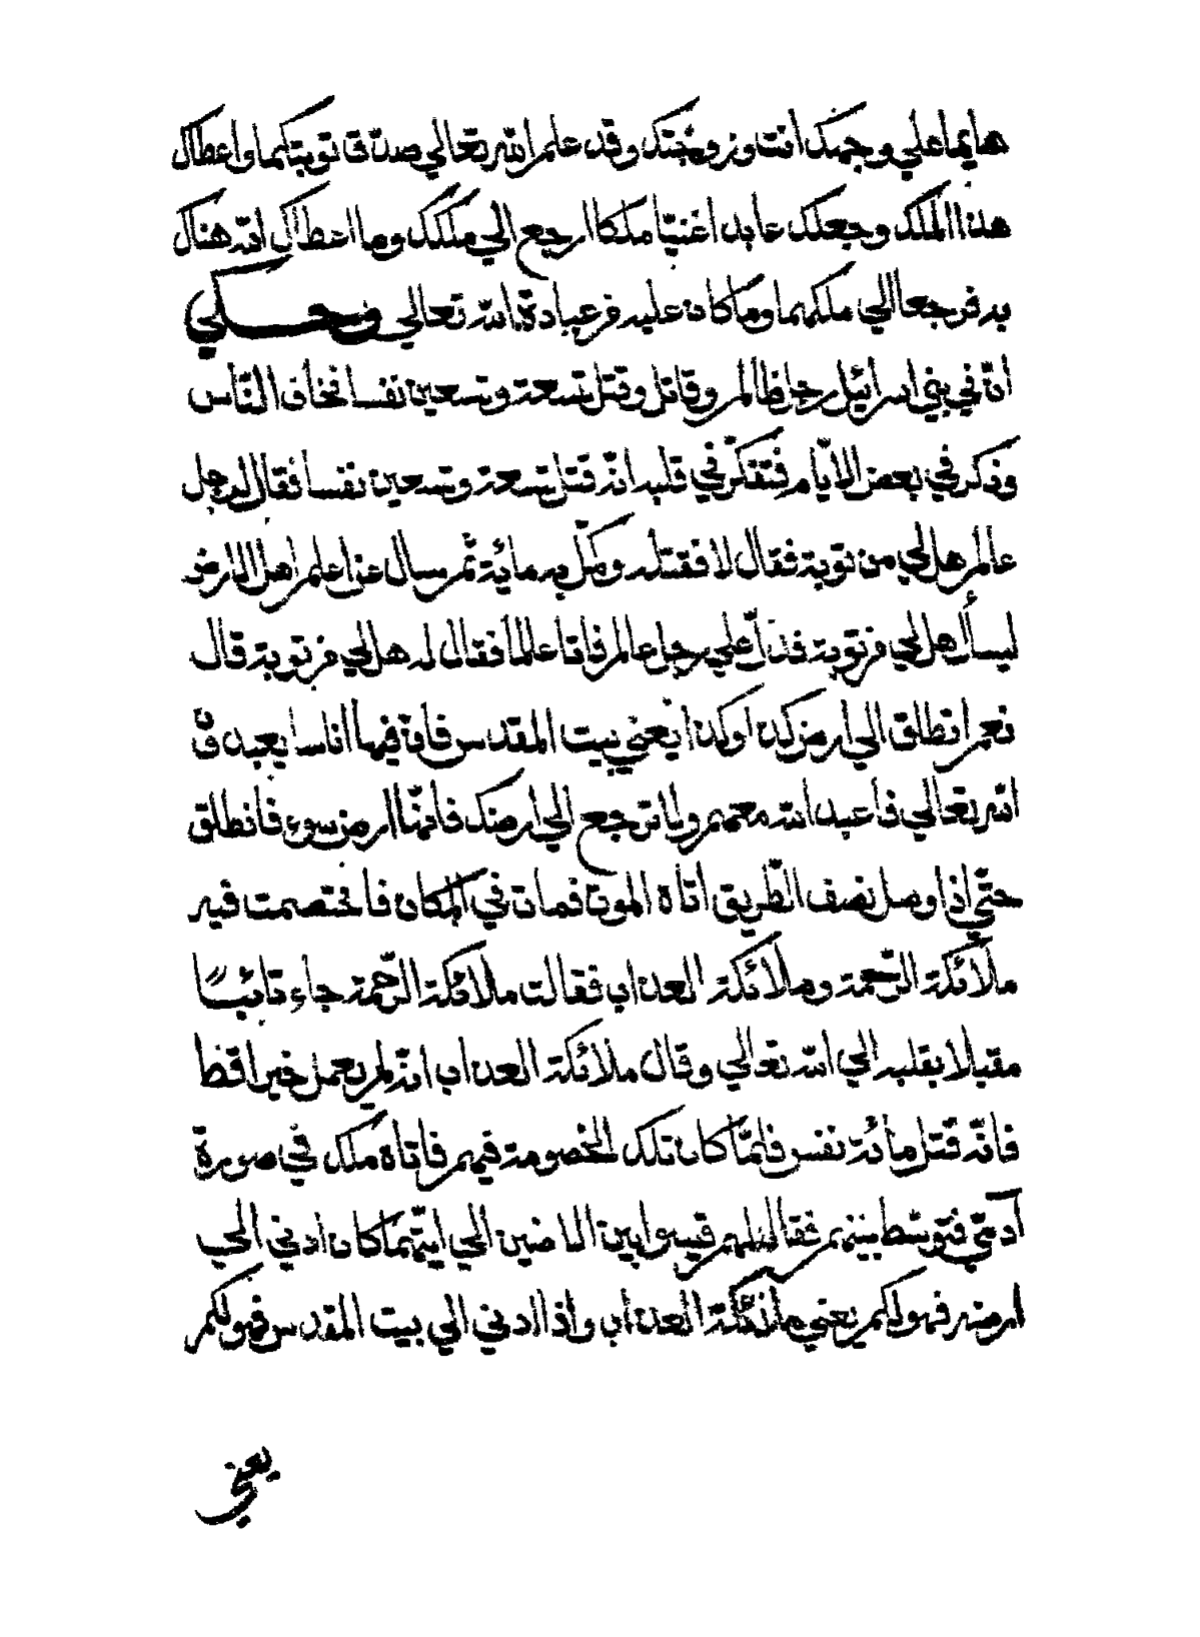 هايما علي وجهك انت وزوجتك وقد علم الله تعالي صدق توبتكما واعطاك
هذا الملك وجعلك عابدا غنيّا ملكا ارجع الي ملكك وما اعطاك الله هناك
به فرجعا الي ملكهما وما كانا عليه من عبادة الله تعالي وحكي
انّ في بني اسرائيل رجل ظالم وقاتل وقتل تسعة وتسعين نفسا فخاف النّاس
وذكر في بعض الايّام فتفكّر في قلبه انّه قتل تسعة وتسعين نفسا فقال لرجل
عالم هل لي من توبة فقال لا فقتله وكمّل به مائة ثم سال عن اعلم اهل الارض
ليسأل هل لي من توبة فدلّ علي رجل عالم فاتا عالما فقال له هل لي من توبة قال
نعم انطلق الي ارض كذا وكذا يعني بيت المقدس فانّ فيها اناسا يعبدون
الله تعالي فاعبد الله معهم ولا ترجع الي ارضك فانّها ارض سوء فانطلق
حتّي اذا وصل نصف الطّريق اتاه الموت فمات في المكان فاختصمت فيه
ملائكة الرّحمة وملائكة العذاب فقالت ملائكة الرّحمة جاء تائبًا
مقبلا بقلبه الي الله تعالي وقال ملائكة العذاب انّه لم يعمل خيرا قط
فانّه قتل مائة نفس فلمّا كان تلك الخصومة فيهم فاتاه ملك في صورة
آدميّ فتوسّط بينهم فقال لهم قيسوا بين الارضين الي ايّتهما كان ادني الي
ارضه فهو لكم يعني ملائكة العذاب واذا ادني الي بيت المقدس فهو لكم
يعني